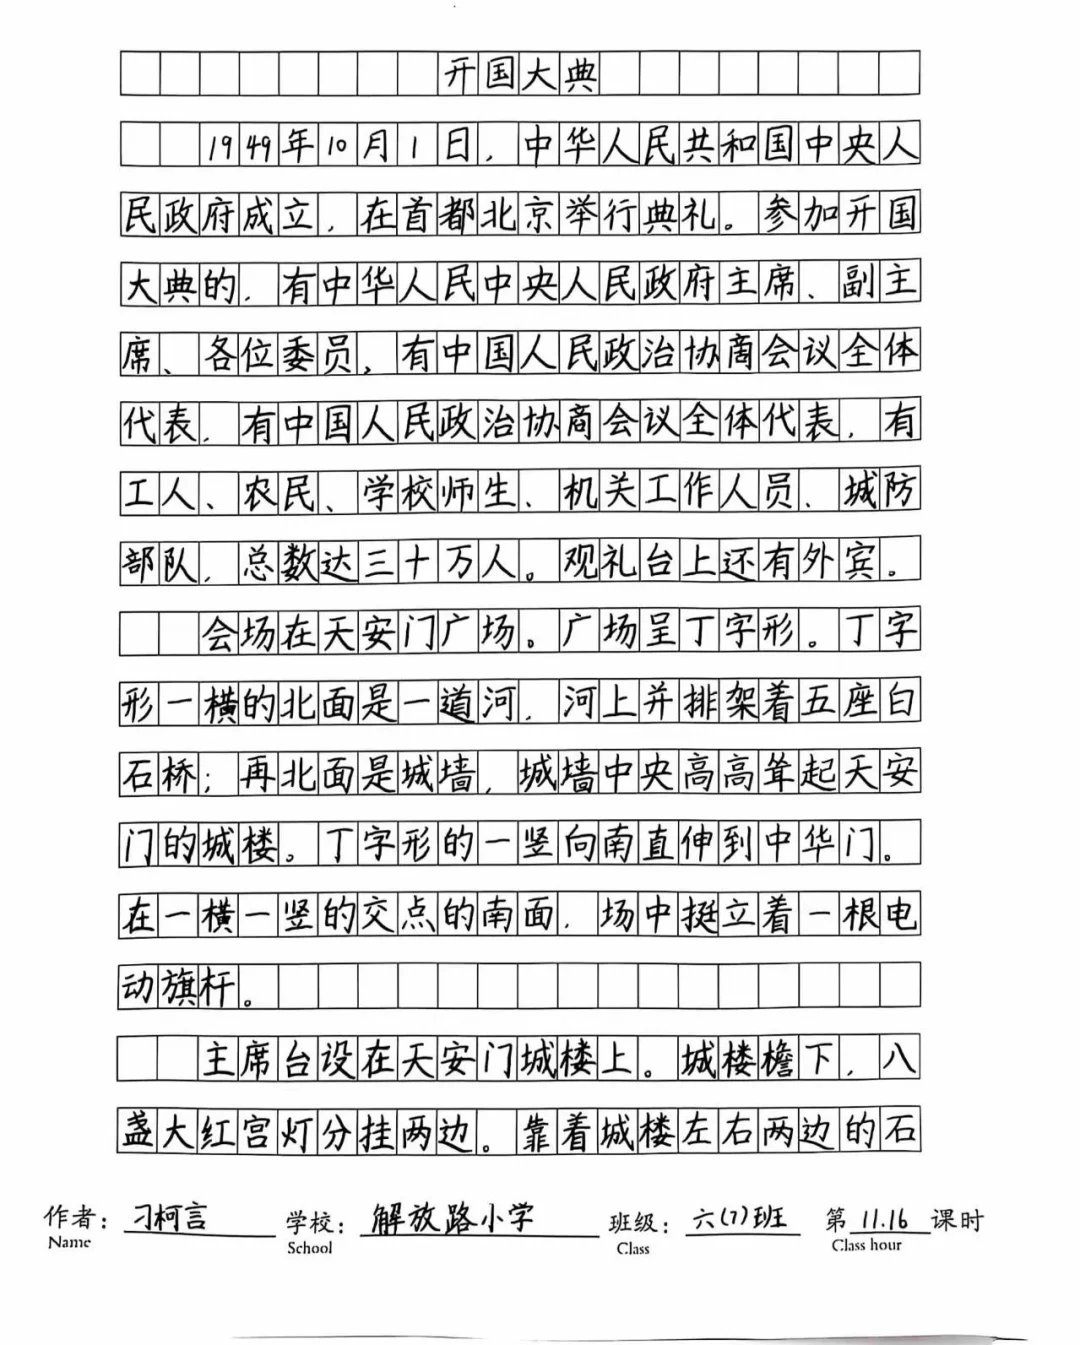 开国大典
1949年10月1日,中华人民共和国中央人
民政府成立,在首都北京举行典礼。参加开国
大典的,有中华人民中央人民政府主席、副主
席、各位委员,有中国人民政治协商会议全体
代表,有中国人民政治协商会议全体代表,有
工人、农民、学校师生、机关工作人员、城防
部队,总数达三十万人。观礼台上还有外宾。
会场在天安门广场。广场呈丁字形。丁字
形一横的北面是一道河,河上并排架着五座白
石桥;再北面是城墙,城墙中央高高耸起天安
门的城楼。丁字形的一竖向南直伸到中华门。
在一横一竖的交点的南面,场中挺立着一根电
动旗杆。
主席台设在天安门城楼上。城楼檐下,八
盏大红宫灯分挂两边。靠着城楼左右两边的石
作者: 刁柯言 学校: 解放路小学 班级: 六(7)班 第 11.16 课时
Name School Class Class hour